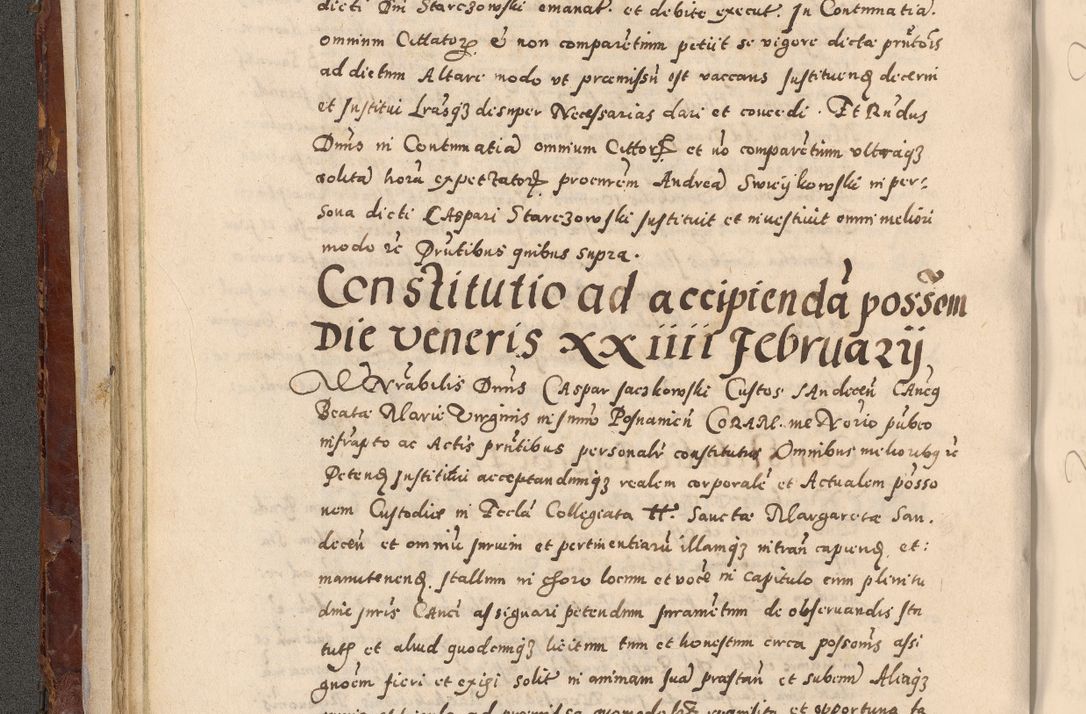 dicti Dni Starczowski emanat. et debite execut. In Contumatia.
omnium Cittatorz et non comparētium petiit se vigore dictæ prntōis
ad dictum Altare modo ut præmissū est vaccans Instituendz decerni
et Institui Lrasqz desuper Necessarias dari et concedi. Et Rndus
Dnus in Contumatiā omnium Cittorz et nō comparētium ultraqz
solitā horā expectatorz procurēm Andreā Swieykowski in per:
sona dicti Caspari Starczowski Instituit et investivit omni meliori
modo rc Prntibus quibus supra.
Constitutio ad accipiendā possēm
Die veneris xxiiii February
Venrabilis Dnus Caspar Jaczkowski Custos Sandeceñ Cancz
Beatæ Mariæ Virginis in summo Posnanieñ CORAM me Norio pubco
infrapto ac Actis prntibus personalr constitutus Omnibus melioribqz rc
Petendz Institui acceptandumqz realem corporalē et Actualem posso
nem Custodiæ in Eccla Collegiata tt. Sanctæ Margaretæ San.
deceñ et omniū Jurium et pertinentiarū illamqz intran capiendz et:
manutenendz. stallum in choro locum et vocē in capitulo cum plenitu
dine juris Canci assignari petendum juramētum de observandis sta
tutz et aliud quodcunqz licitum tum et honestum circa possonis assi
gnoēm fieri et exigi solit in animam suā præstan et subeun Aliaqz